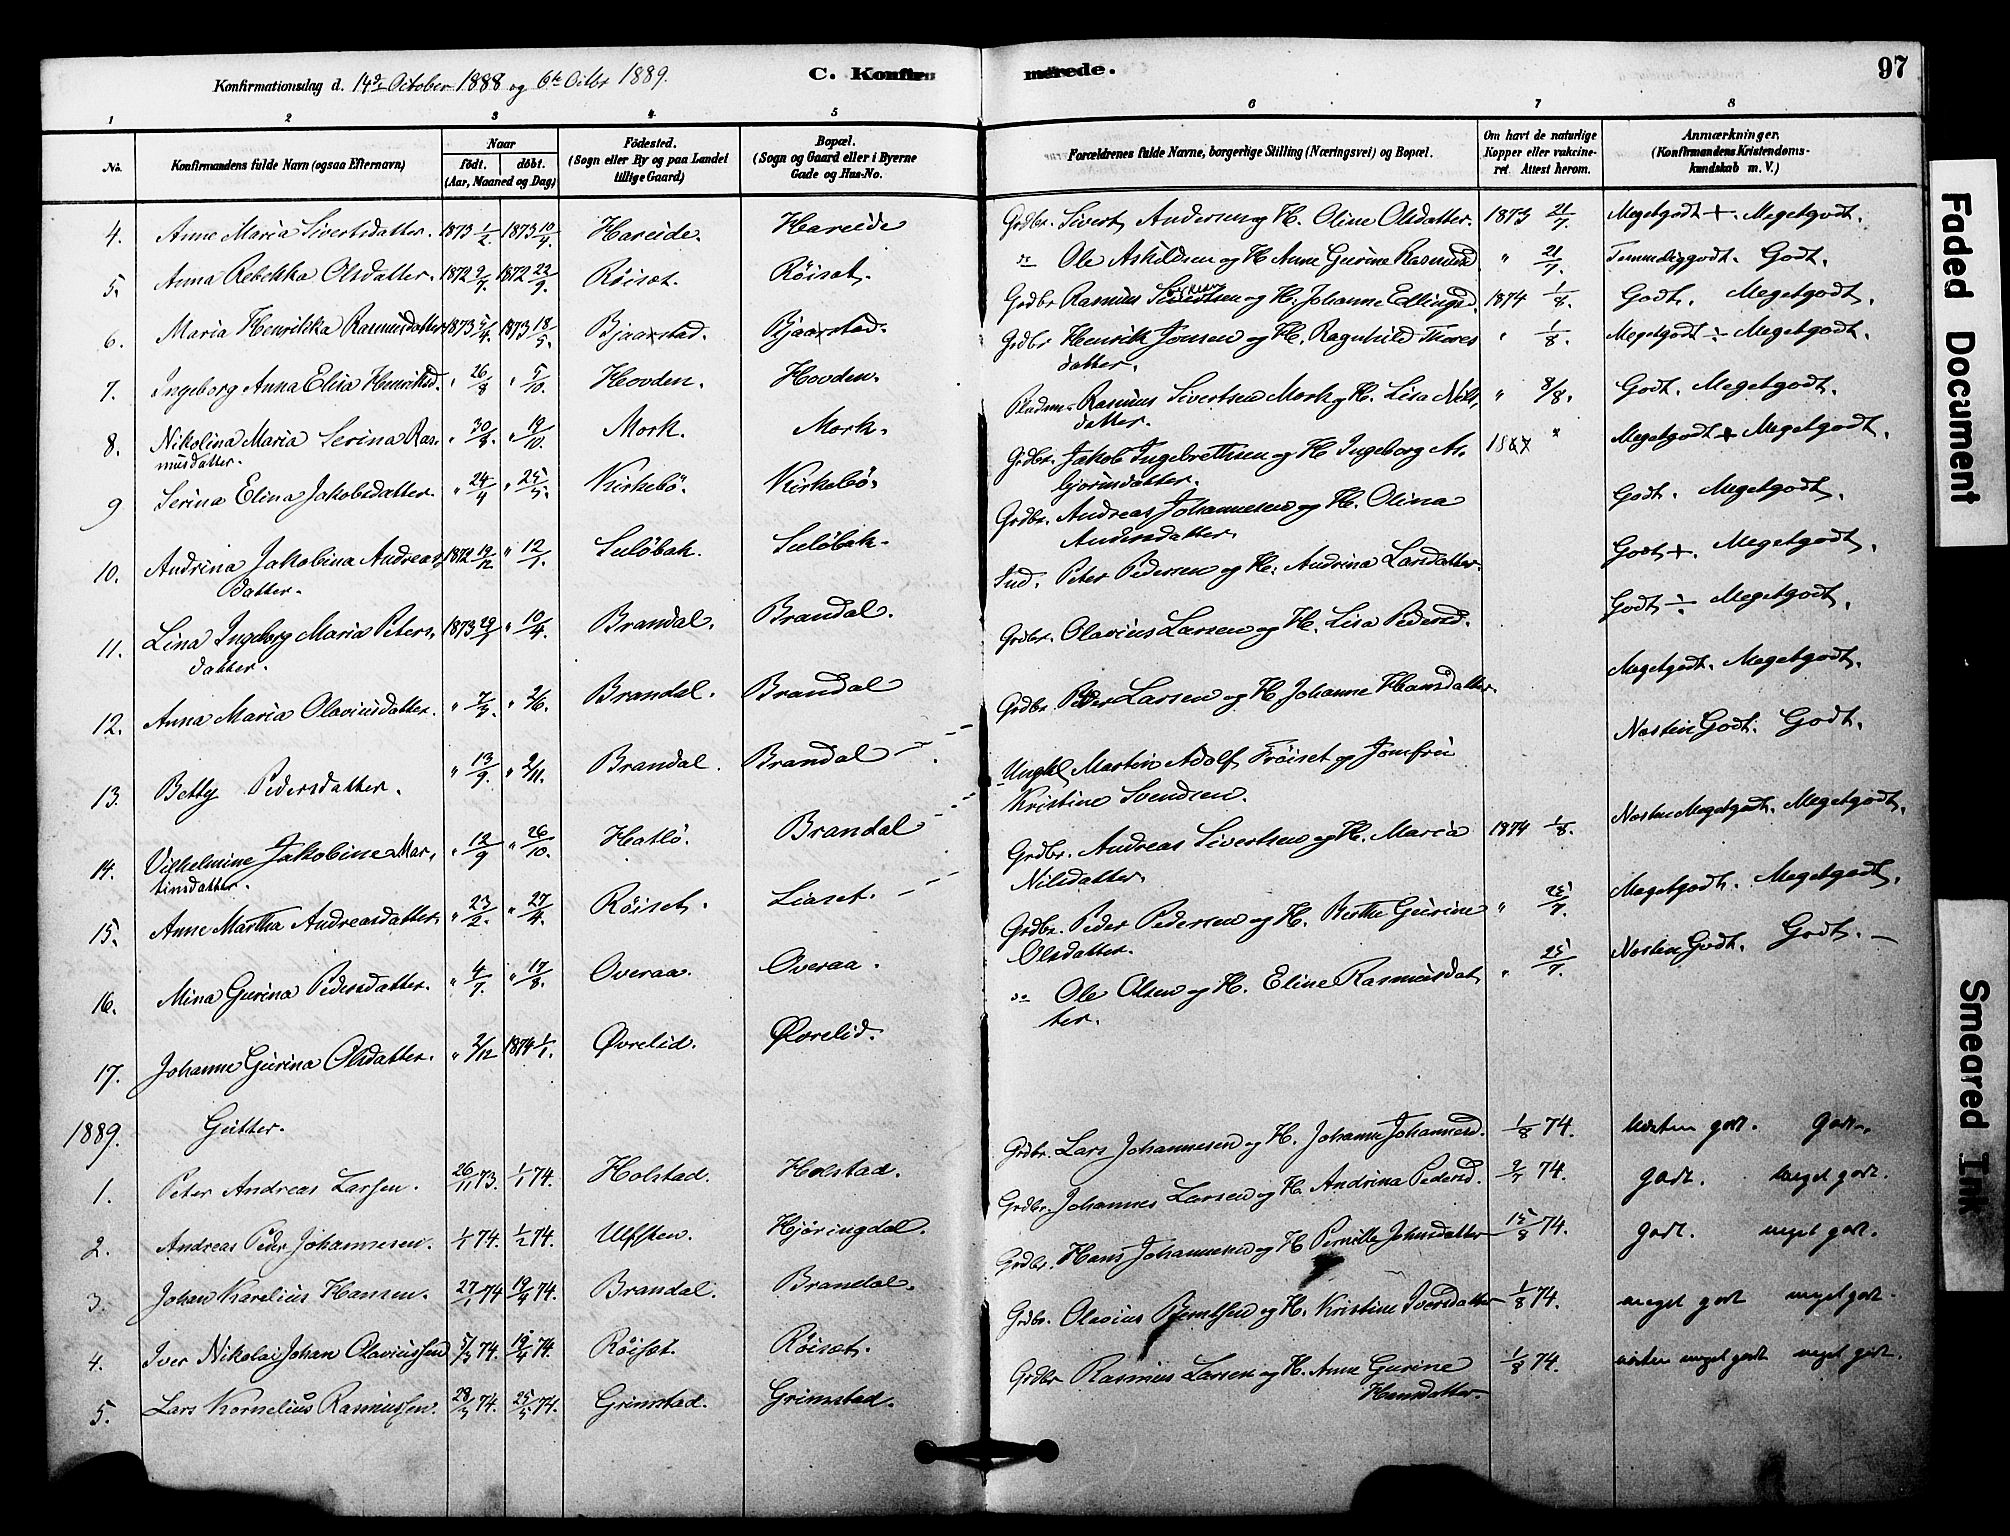 Konfirmationsdag d. 14de October 1888 og 6te Octbr 1889.
C. Konfirmerede.
97
1 2 3 4 5 6 7 8
No.
Konfirmandens fulde Navn (ogsaa Efternavn)
Naar
födt. döbt.
(Aar, Maaned og Dag)
Födested.
(Sogn eller By og paa Landet
tillige Gaard)
Bopæl.
(Sogn og Gaard eller i Byerne
Gade og Hus-No.
Forældrenes fulde Navne, borgerlige Stilling (Næringsvei) og Bopæl.
Om havt de naturlige
Kopper eller vakcine-
ret. Attest herom.
Anmærkninger.
(Konfirmandens Kristendoms-
kundskab m. V.)
4. Anne Maria Sivertsdatter. 1873 1/2 1873 10/4. Hareide. Hareide Grdbr. Sivert Andersen og H. Oline Olsdatter. 1873 21/7. Megetgodt +. Megetgodt.
5. Anna Rebekka Olsdatter. 1872 2/7. 1872 22/9. Röiset. Röiset. " Ole Askildsen og H. Anne Gurine Rasmusd. " 21/7. Temmeliggodt. Godt.
6. Maria Henrikka Rasmusdatter 1873 5/4. 1873 18/5. Bjaastad. Bjaastad. Grdbr Rasmus Sivertsen og H. Johanne Ellingsd. 1874 1/8. Godt. Megetgodt.
7. Ingeborg Anna Elisa Henriksd. " 26/8 " 5/10. Hovden. Hovden. Grdbr Henrik Jonsen og H. Ragnhild Thores
datter. " 1/8. Megetgodt ÷ Megetgodt.
8. Nikolina Maria Serina Ras-
musdatter. " 30/8. " 19/10. Mork. Mork. Pladsm. Rasmus Sivertsen Mork og H. Lisa Nils,
datter. " 8/8. Godt. Megetgodt.
9 Serina Elina Jakobsdatter. " 24/4 " 25/5. Kirkebö. Kirkebö. Grdbr. Jakob Ingebrethsen og H. Ingeborg As-
björnsdatter. Megetgodt + Megetgodt.
10. Andrina Jakobina Andreas,
datter. 1872 19/12 " 12/1. Sulöbak. Sulöbak. Grdbr. Andreas Johannesen og H. Olina
Andersdatter. Godt. Megetgodt.
11. Lina Ingeborg Maria Peters,
datter. 1873 " 10/4. Brandal. Brandal. Ind. Peter Pedersen og H. Andrina Larsdatter. Godt +. Megetgodt.
12. Anna Maria Olaviusdatter. " " 2/6. Brandal. Brandal Grdbr. Olavius Larsen og H. Lisa Pedersd. Godt ÷. Megetgodt.
13. Betty Pedersdatter. " 13/9. " 2/11. Brandal. Brandal Grdbr. Peder Larsen og H. Johanne Hansdatter. Megetgodt. Megetgodt.
14. Vilhelmine Jakobine Mar,
tinsdatter. " 12/9 " 26/10. Hatlö. Brandal Ungkl. Martin Adolf Fröiset og Jomfru
Kristine Svendsen. Næsten Godt. Godt.
15. Anne Martha Andreasdatter " 23/2. " 27/4. Röiset. Liaset. Grdbr. Andreas Sivertsen og H. Maria
Nilsdatter. 1874 1/8. Næsten Megetgodt. Megetgodt.
16. Mina Gurina Pedersdatter. " 4/7. " 17/8. Overaa. Overaa. Grdbr. Peder Pedersen og H. Berthe Gurine
Olsdatter. " 25/7. Megetgodt. Megetgodt.
17. Johanne Gurina Olsdatter. " 2/12 1874 1/1. Øvrelid. Øvrelid. " Ole Olsen og H. Eline Rasmusdat,
ter. " 25/7. Næsten Godt. Godt. —
1889. Gutter.
1. Peter Andreas Larsen. 26/11 73. 1/1 74. Holstad. Holstad. Grdbr. Lars Johannesen og H. Johanne Johannesd. 1/8 74. næsten godt. Godt.
2. Andreas Peder Johannesen. 1/1 74. 1/2 74. Ulfsten. Hjöringdal. Grdbr. Johannes Larsen og H. Andrina Pedersd. 74. godt. meget godt.
3. Johan Karelius Hansen. 27/1 74 19/4 74. Brandal. Brandal. Grdbr. Hans Johannesen og H. Pernille Johnsdatter 15/8 74. godt. meget godt.
4. Iver Nikolai Johan Olaviussen 5/3 74. 19/4 74. Röiset. Röiset. Grdbr. Olavius Berntsen og H. Kristine Iversdatter 1/8 74. meget godt meget godt.
5. Lars Kornelius Rasmussen. 28/3 74. 25/5 74. Grimstad. Grimstad. Grdbr Rasmus Larsen og H. Anne Gurine
Hansdatter. 1/8 74. næsten meget godt meget godt.
Faded Document
Smeared Ink